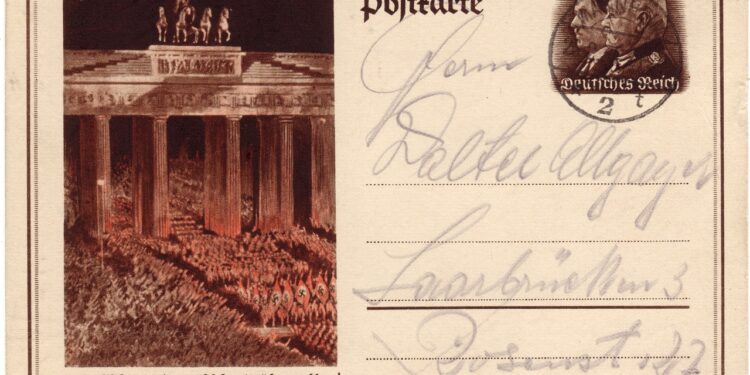 Postkarte
Deutsches Reich
2 t
Herrn
Walter Allgayer
Saarbrücken 3
Rosenstr.